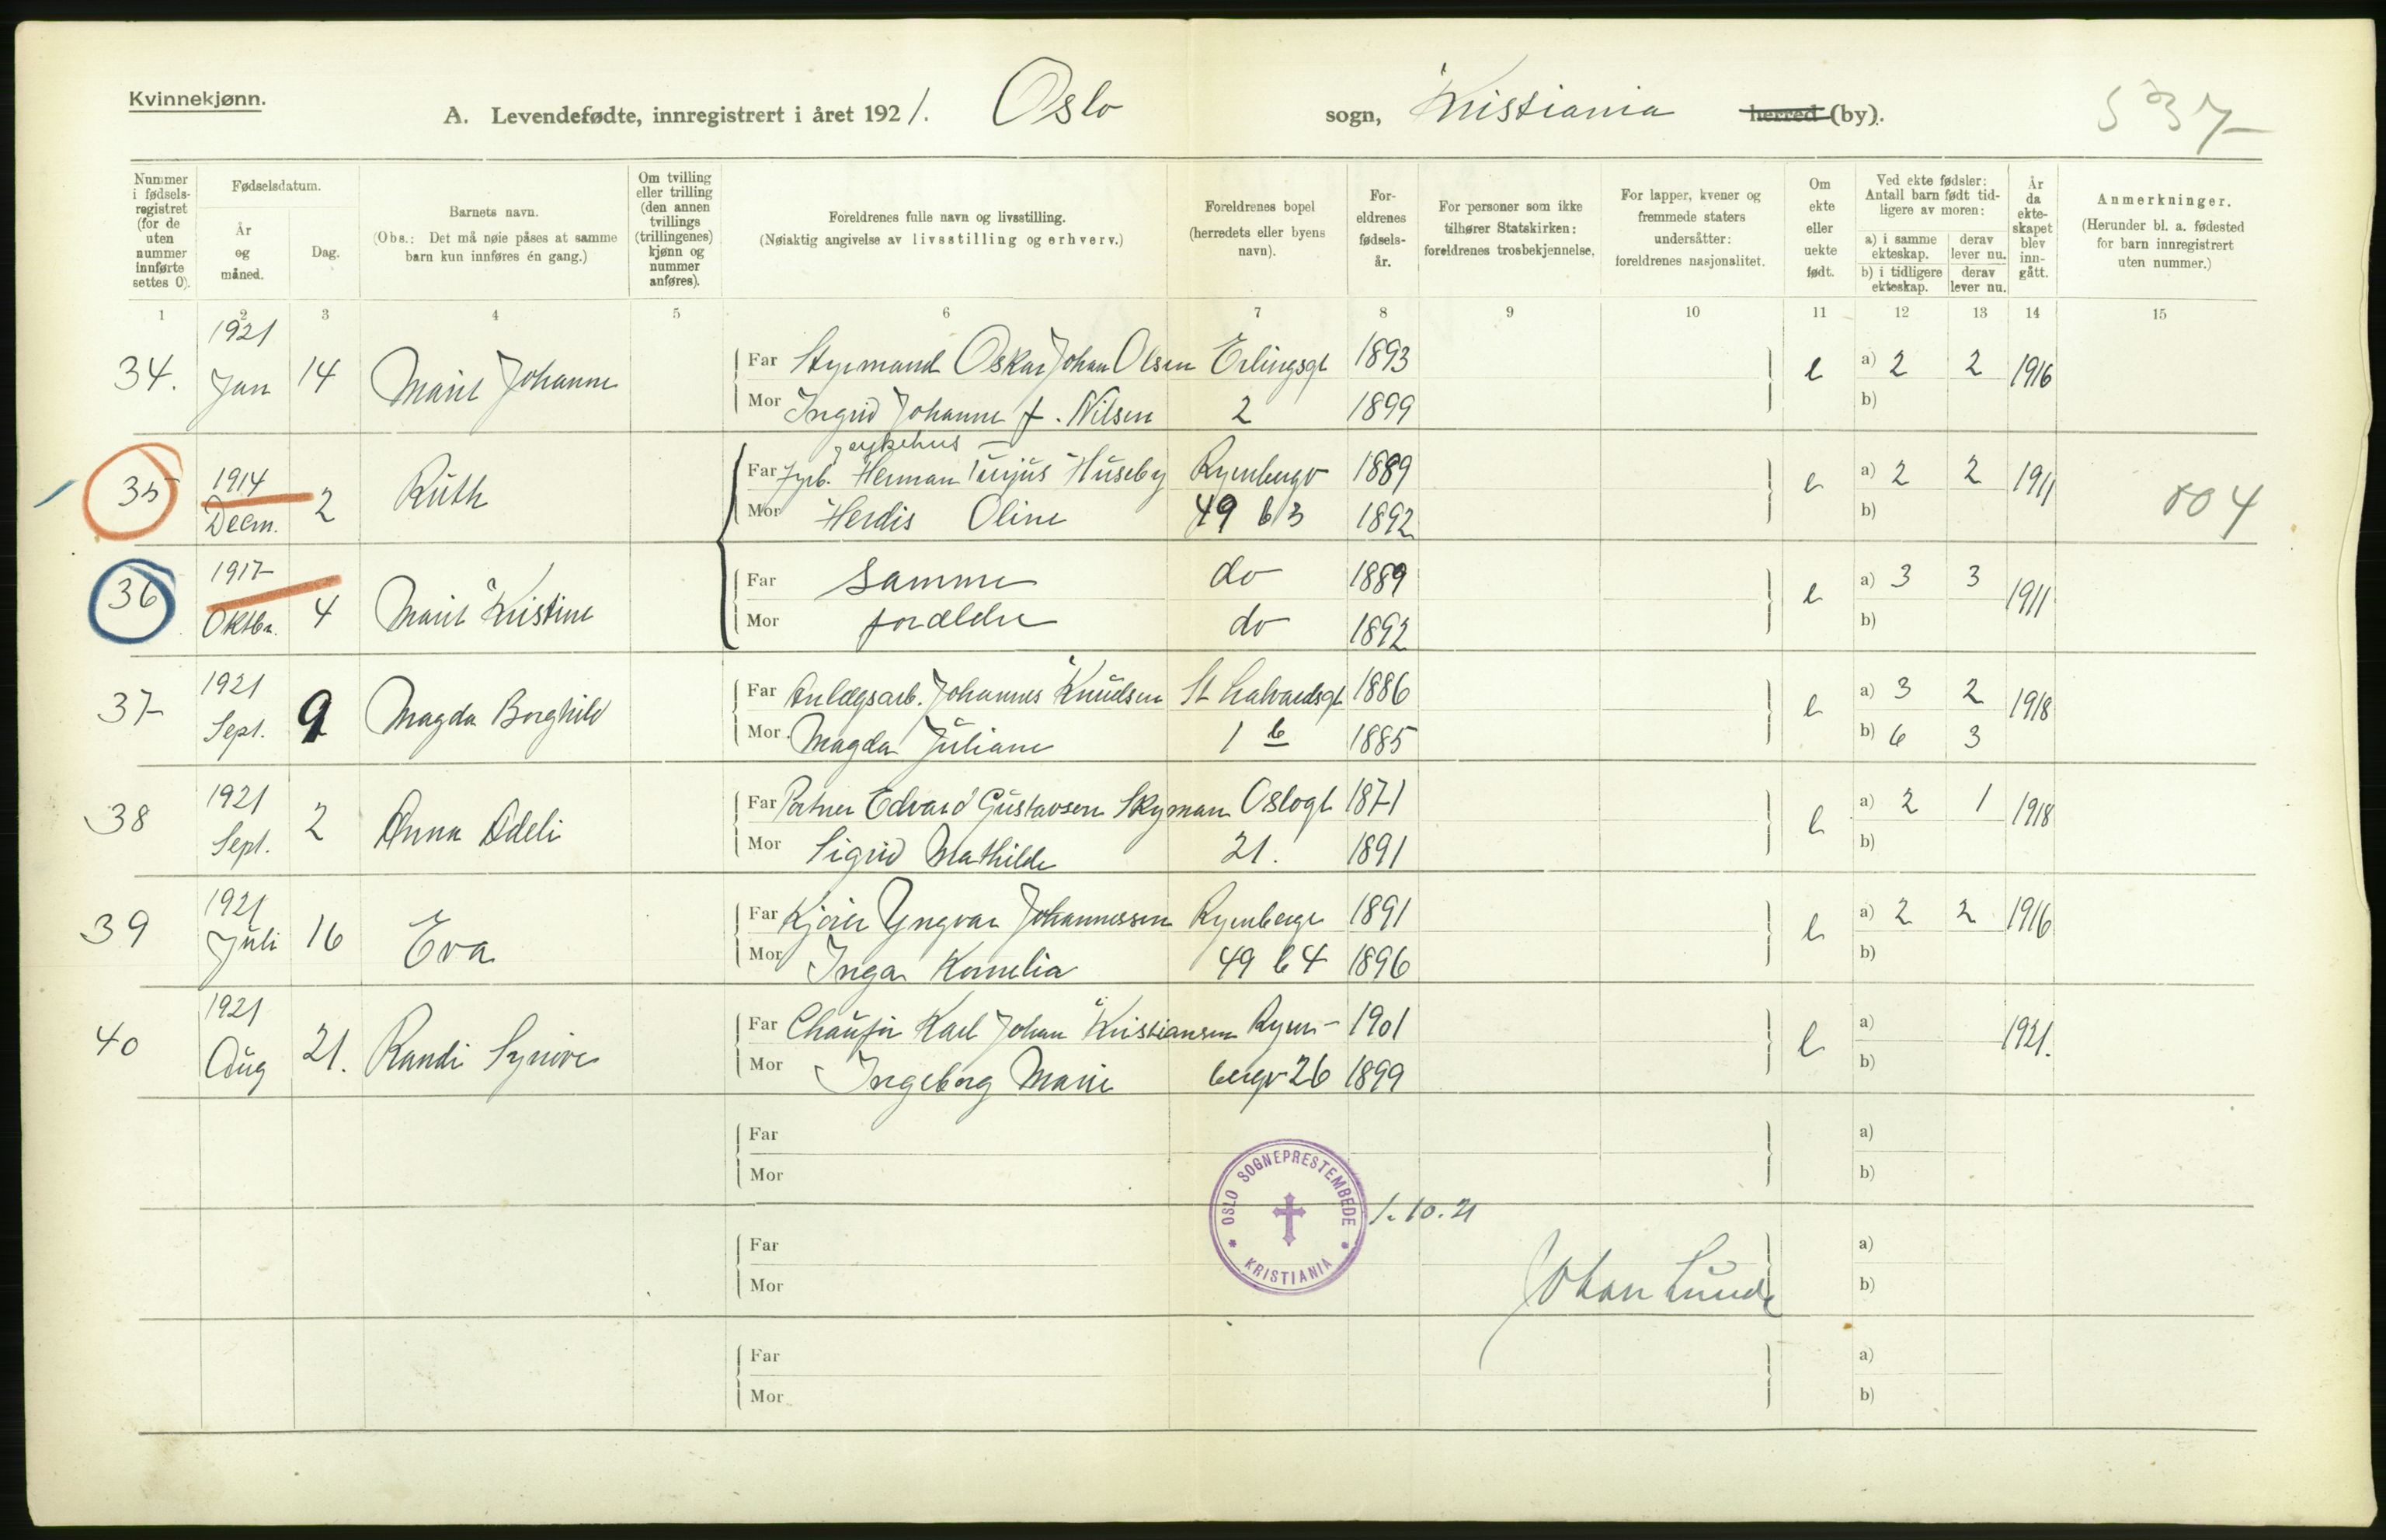 Kvinnekjønn.
A. Levendefødte, innregistrert i året 1921. Oslo sogn, Kristiania herred (by).
537
Nummer i fødselsregistret (for de uten nummer innførte settes 0).
Fødselsdatum.
År og måned.
Dag.
Barnets navn.
(Obs.: Det må nøie påses at samme barn kun innføres én gang.)
Om tvilling eller trilling (den annen tvillings (trillingenes) kjønn og nummer anføres).
Foreldrenes fulle navn og livsstilling.
(Nøiaktig angivelse av livsstilling og erhverv.)
Foreldrenes bopel (herredets eller byens navn).
Foreldrenes fødselsår.
For personer som ikke tilhører Statskirken: foreldrenes trosbekjennelse.
For lapper, kvener og fremmede staters undersåtter: foreldrenes nasjonalitet.
Om ekte eller uekte født.
Ved ekte fødsler: Antall barn født tidligere av moren:
a) i samme ekteskap. derav lever nu.
b) i tidligere ekteskap. derav lever nu.
År da ekteskapet blev inngått.
Anmerkninger.
(Herunder bl. a. fødested for barn innregistrert uten nummer.)
1 2 3 4 5 6 7 8 9 10 11 12 13 14 15
34. 1921 Jan 14 Marit Johanne
Far Styrmand Oskar Johan Olsen Erlingsgt 1893 e a) 2 2 1916
Mor Ingrid Johanne f. Nilsen 2 1899 b)
35 1914 Decm. 2 Ruth
Far Fyrb. Herman Huseby Ryenbergv 1889 e a) 2 2 1911
Mor Herdis Oline 49 b 3 1892 b)
004
36 1917 Oktbr. 4 Marit Kristine
Far Samme do 1889 e a) 3 3 1911
Mor forældre do 1892 b)
37 1921 Sept. 9 Magda Borghild
Far Anlægsarb. Johannes Knudsen St Halvardsgt 1886 e a) 3 2 1918
Mor Magda Juliane 1 b 1885 b) 6 3
38 1921 Sept. 2 Anna Adeli
Far Portner Edvard Gustavsen Skyman Oslogt 1871 e a) 2 1 1918
Mor Sigrid Mathilde 21. 1891 b)
39 1921 Juli 16 Eva
Far Kjører Yngvar Johannessen Ryenbergv 1891 e a) 2 2 1916
Mor Inga Kornelia 49 b 4 1896 b)
40 1921 Aug 21. Randi Synøve
Far Chaufør Karl Johan Kristiansen Ryen- 1901 e a) 1921.
Mor Ingeborg Marie bergv 26 1899 b)
Far a)
Mor b)
OSLO SOGNEPRESTEMBEDE KRISTIANIA
1.10.21
Far a)
Mor b)
Johan Lunde
Far a)
Mor b)